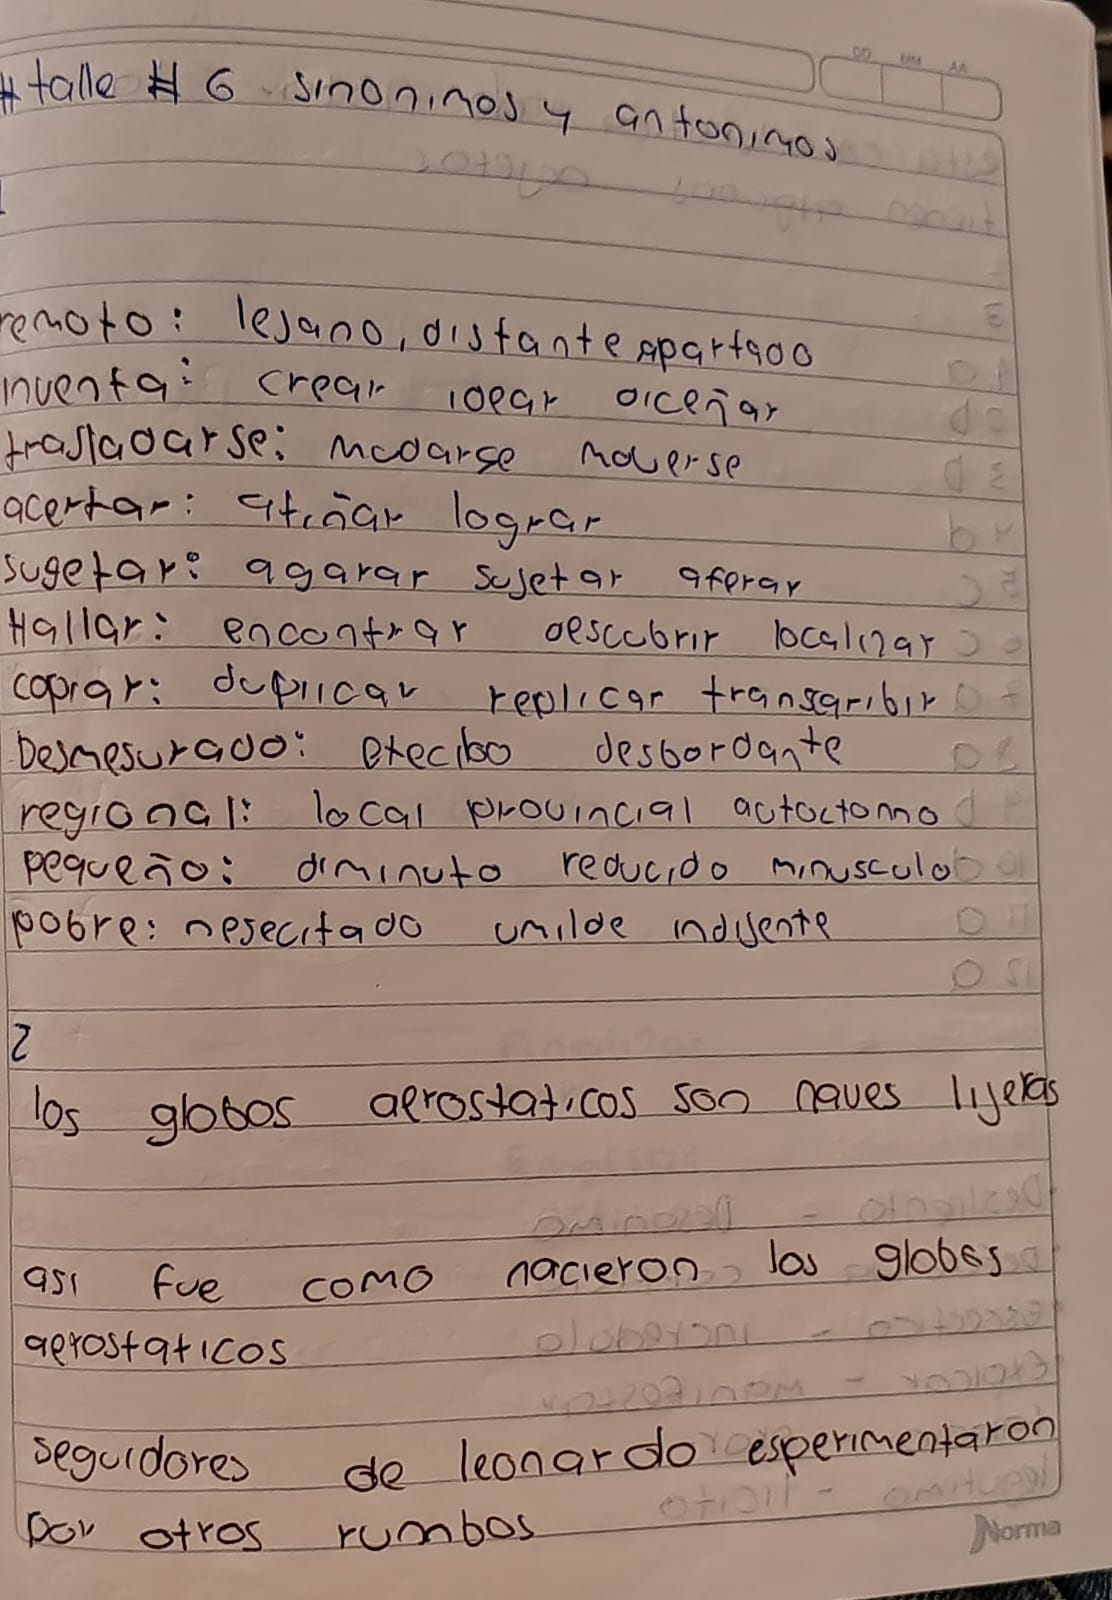 # talle # 6 sinonimos y antonimos
DD MM AA
remoto: lejano, distante apartado
inventa: crear idear diceñar
trasladarse: mudarse moverse
acertar: atiñar lograr
sugetar: agarar sujetar aferar
Hallar: encontrar descubrir localizar
copiar: duplicar replicar transcribir
Desmesurado: execibo desbordante
regional: local provincial autoctomo
pequeño: diminuto reducido minusculo
pobre: nesecitado umilde indijente
2
los globos aerostaticos son naves lijeras
asi fue como nacieron los globos
aerostaticos
seguidores de leonardo esperimentaron
por otros rumbos
Norma